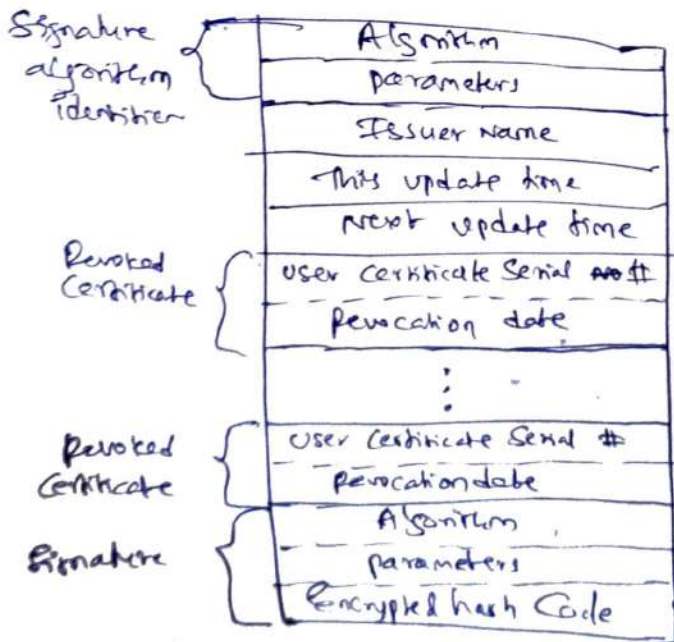 Signature
algorithm
identifier
Algorithm
parameters
Issuer Name
This update time
Next update time
Revoked
Certificate
User Certificate Serial #
Revocation date
⋮
Revoked
Certificate
User Certificate Serial #
Revocation date
Signature
Algorithm
parameters
Encrypted hash Code